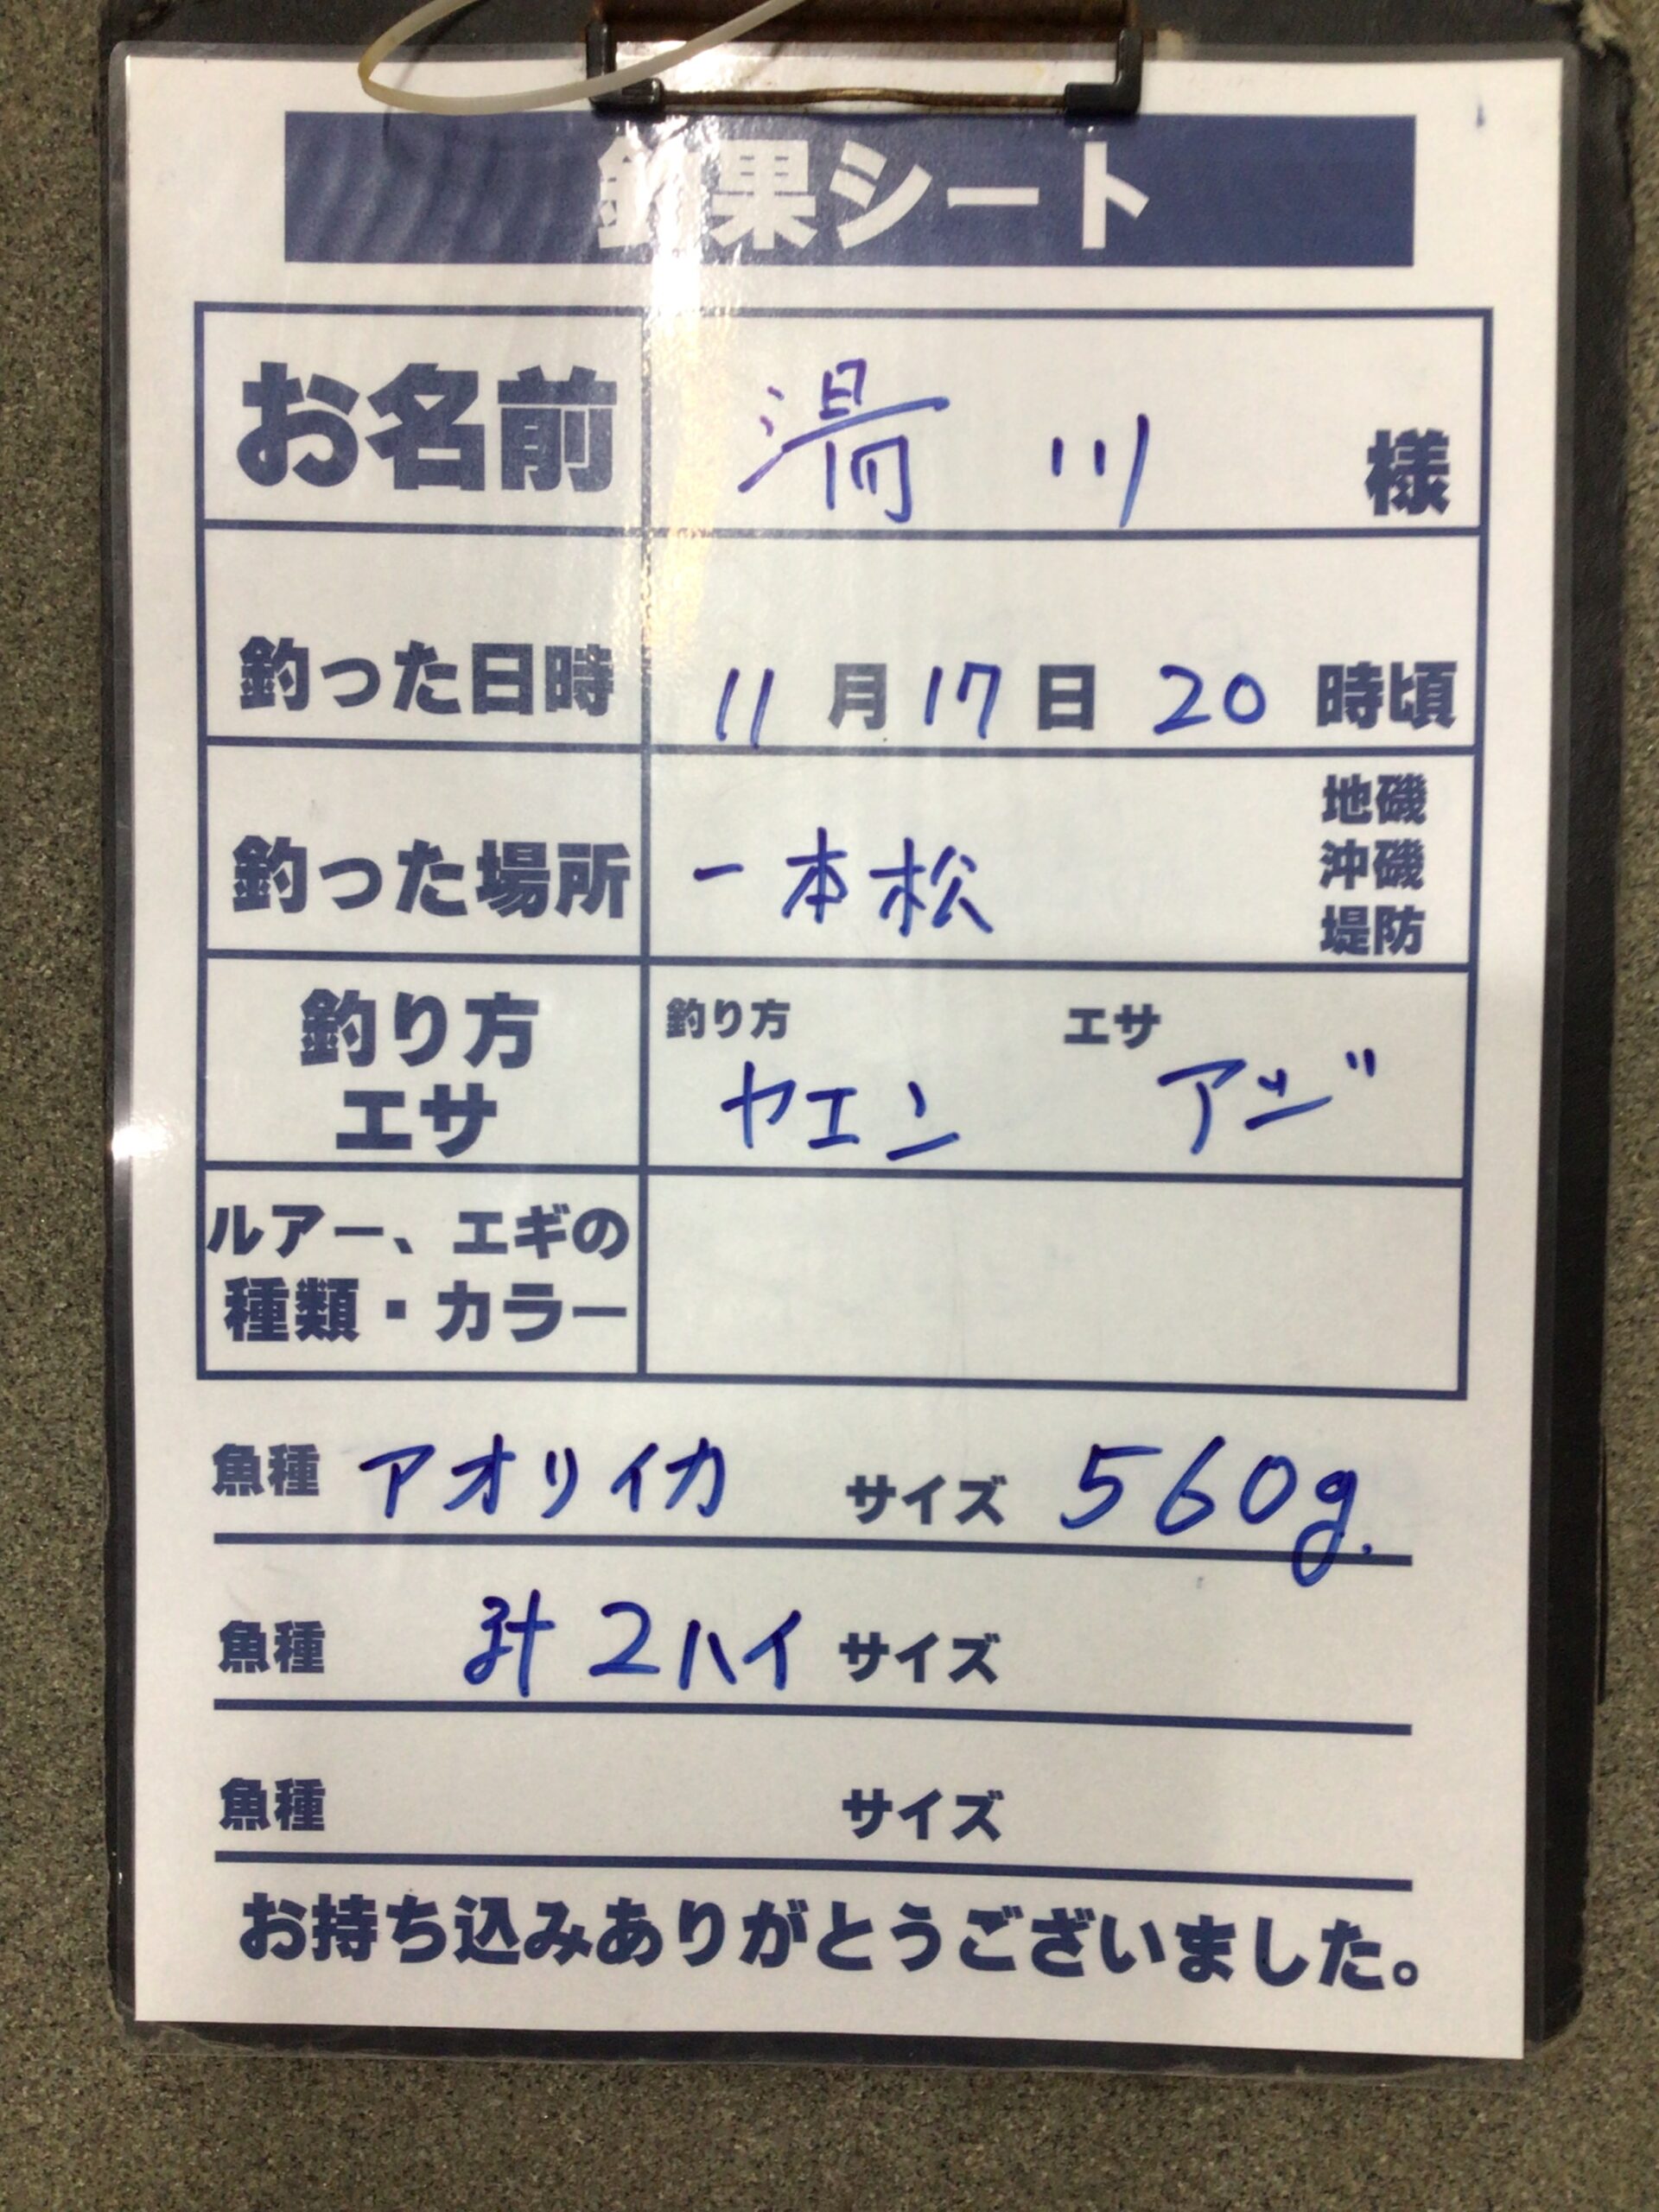 釣果シート
お名前 湯川 様
釣った日時 11月17日 20時頃
釣った場所 一本松 地磯 沖磯 堤防
釣り方 エサ 釣り方 ヤエン エサ アジ
ルアー、エギの
種類・カラー
魚種 アオリイカ サイズ 560g.
魚種 計2ハイ サイズ
魚種 サイズ
お持ち込みありがとうございました。